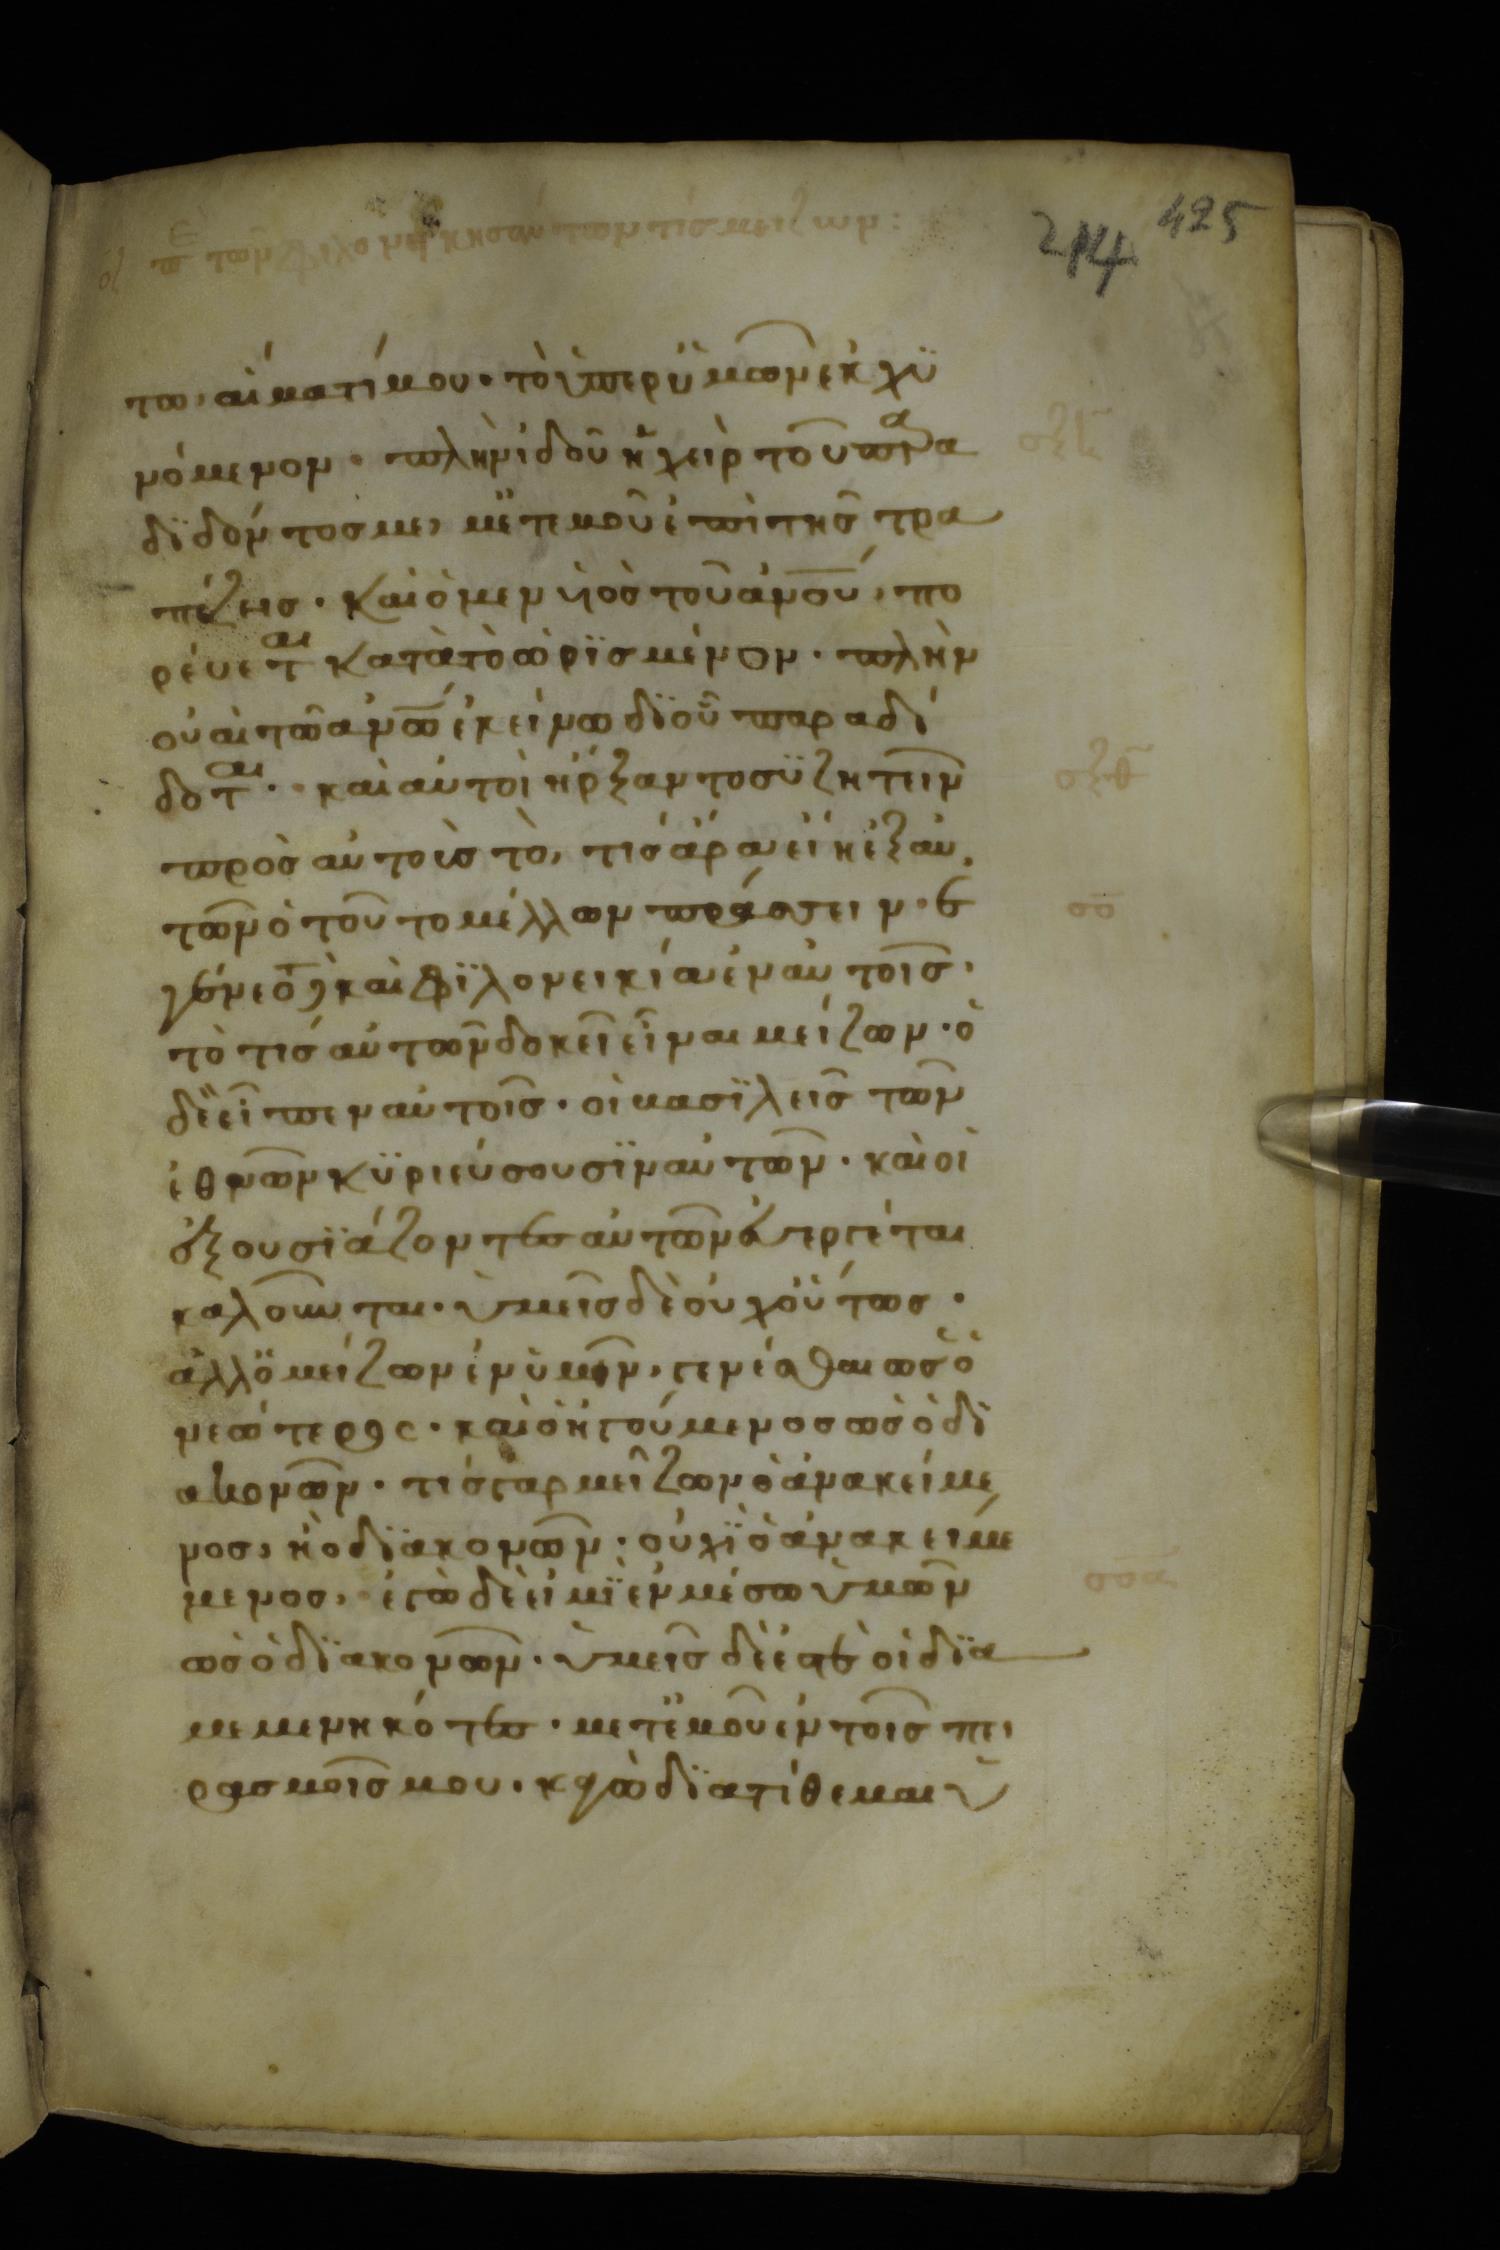 οζ περὶ τῶν φιλονεικησάντων τίς μείζων:
214 425
τω αἵματί μου· τὸ ὑπερ ὑμῶν ἐκχϋ
νόμενον· πλὴν ἰδοῦ ἡ χεὶρ τοῦ παρα
δϊδόντοσ με, μετ ἐμοῦ ἐπὶ τῆσ τρα
πέζησ· καὶ ὁ μεν υἱὸσ τοῦ ἀνου, πο
ρέυεται κατὰ τὸ ὡρϊσμένον· πλὴν
οὐαὶ τῶ ἀνω ἐκείνω δϊ οὗ παραδί
δοται· καὶ αὐτοὶ ἤρξαντο συζητεῖν
πρὸσ αὐτοὺσ τὸ, τίσ ἄρα εἴη ἐξ αὐ
τῶν ὁ τοῦτο μέλλων πράσσειν· ε
γένετο δὲ καὶ φϊλονεικία ἐν αὐτοῖσ·
τὸ τίσ αὐτῶν δοκεῖ εἶναι μείζων· ὁ
δὲ εἶπεν αὐτοῖσ· οἱ βασϊλεῖσ τῶν
ἐθνῶν κϋριεύσουσϊν αὐτῶν· καὶ οἱ
ἐξουσϊάζοντεσ αὐτῶν εὐεργέται
καλοῦνται· ὑμεῖσ δὲ οὐχ οὕτωσ·
ἀλλ ὁ μείζων ἐν ὑμῖν, γενέσθαι ωσ ὁ
νεώτεροσ· καὶ ὁ ἡγούμενοσ ωσ ὁ δϊ
ακονῶν· τίσ γαρ μεῖζων ὁ ἀνακείμε
νοσ, ἢ ὁ δϊακονῶν· οὐχϊ ὁ ἀνακειμε
μενοσ, ἐγὼ δὲ εἰμϊ ἐν μέσω ὑμῶν
ωσ ὁ δϊακονῶν· ὑμεῖσ δέ ἐστε οἱ δϊα
μεμενηκότεσ· μετ ἐμοῦ ἐν τοῖσ πει
ρασμοῖσ μου· κἀγὼ δϊατίθεμαι ὑ
σξη
σξθ
σο
σοα